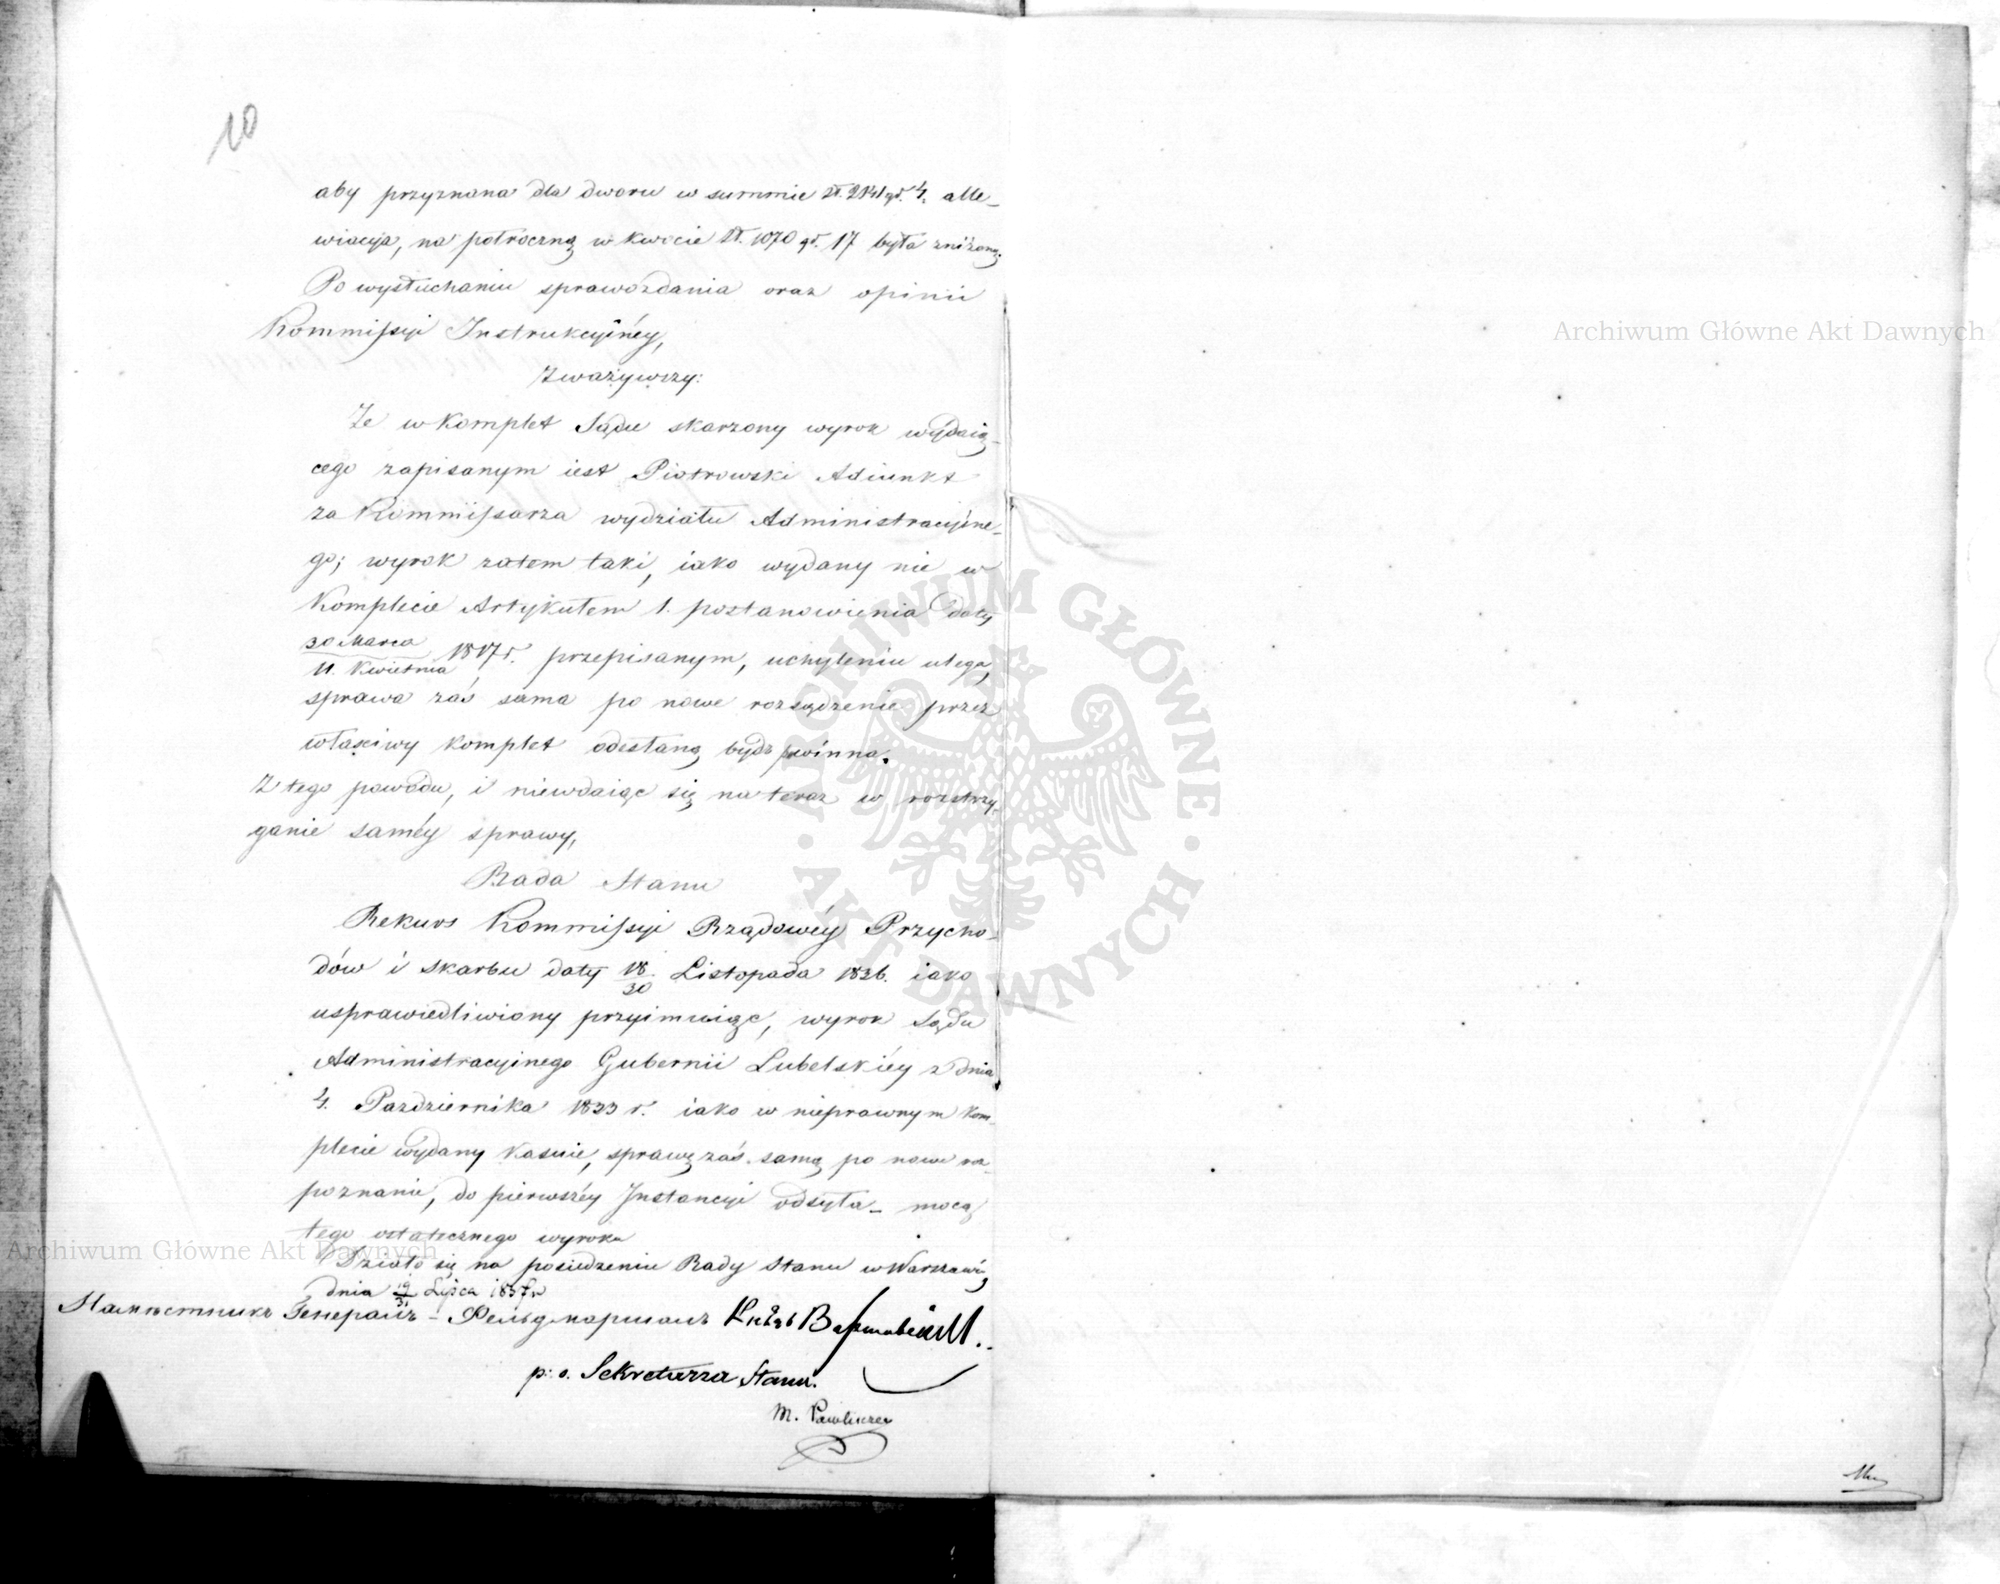 10
aby przyznana dla dworu w summie zł. 2141 gr. 4. alle-
wiacya, na półroczną w kwocie zł. 1070 gr. 17 była zniżoną.
Po wysłuchaniu sprawozdania oraz opinii
Kommissyi Instrukcyinéy,
Zważywszy:
Że w komplet Sądu skarżony wyrok wydaią-
cego zapisanym iest Piotrowski Adiunkt
za Kommissarza wydziału Administracyine-
go; wyrok zatem taki, iako wydany nie w
Komplecie Artykułem 1. postanowienia daty
30 Marca
11. Kwietnia 1817 r. przepisanym, uchyleniu ulega,
sprawa zaś sama po nowe rozsądzenie przez
właściwy komplet odesłaną bydź powinna.
Z tego powodu, i niewdaiąc się na teraz w rozstrzy-
ganie saméy sprawy,
Rada Stanu
Rekurs Kommissyi Rządowéy Przycho-
dów i Skarbu daty 18/30 Listopada 1836. iako
usprawiedliwiony przyimuiąc, wyrok Sądu
Administracyinego Gubernii Lubelskiéy z dnia
4. Października 1833 r. iako w nieprawnym kom-
plecie wydany kasuie, sprawę zaś samą po nowe roz-
poznanie, do pierwszéy Instancyi odsyła - mocą
tego ostatecznego wyroku
Działo się na posiedzeniu Rady Stanu w Warszawie
dnia 19/31 Lipca 1837 r.
Намѣстникъ Генералъ-Фельдмаршалъ Князь Варшавскій.
p. o. Sekretarza Stanu.
M. Pawliszczew
Archiwum Główne Akt Dawnych
Archiwum Główne Akt Dawnych
ARCHIWUM GŁÓWNE · AKT DAWNYCH ·